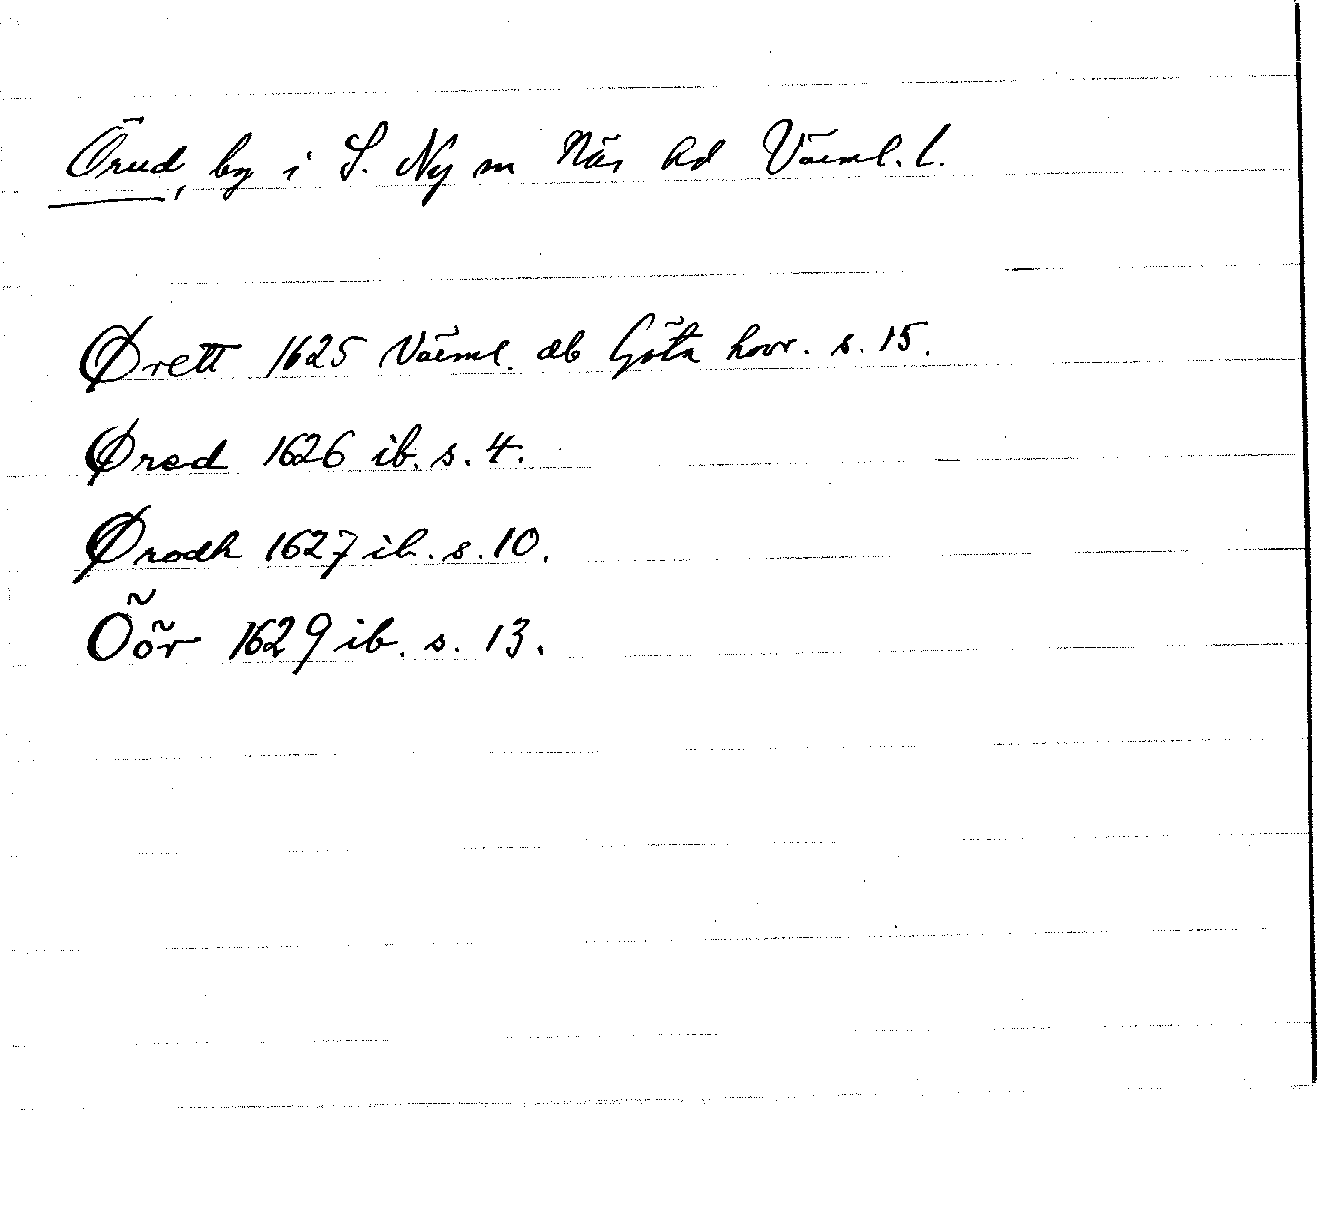 Örud, by i S. Ny sn Näs hd Värml. l.
Ørett 1625 Värml. db Göta hovr. s. 15.
Øred 1626 ib. s. 4.
Ørodh 1627 ib. s. 10.
Öör 1629 ib. s. 13.